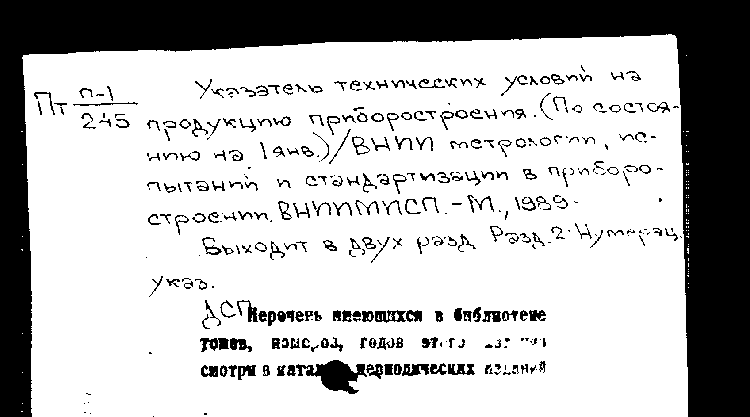 Пт П-1/245 Указатель технических условий на
продукцию приборостроения. (По состоя-
нию на 1 янв.) / ВНИИ метрологии, ис-
пытаний и стандартизации в приборо-
строении. ВНИИМИСП. - М., 1989-
Выходит в двух разд. Разд. 2. Нумерац.
указ.
ДСП Перечень имеющихся в библиотеке
томов, номеров, годов этого
смотри в каталоге периодических изданий